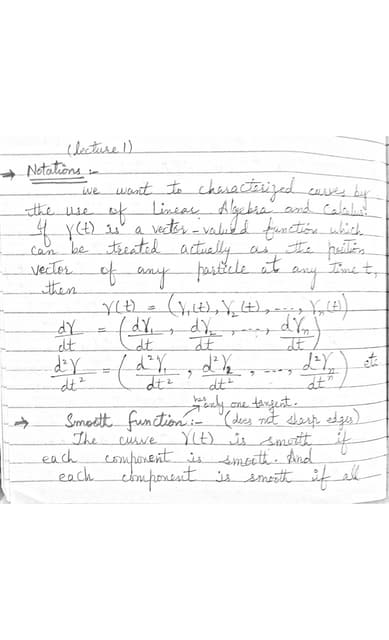 (lecture 1)
→ Notations :-
we want to characterized curves by
the use of Linear Algebra and Calculus.
If γ(t) is a vector-valued function which
can be treated actually as the position
vector of any particle at any time t,
then
γ(t) = (γ₁(t), γ₂(t), ----, γₙ(t))
dγ/dt = (dγ₁/dt, dγ₂/dt, ----, dγₙ/dt)
d²γ/dt² = (d²γ₁/dt², d²γ₂/dt², ----, d²γₙ/dtⁿ) etc
↳ has only one tangent.
→ Smooth function :- (does not sharp edges)
The curve γ(t) is smooth if
each component is smooth. And
each component is smooth if all